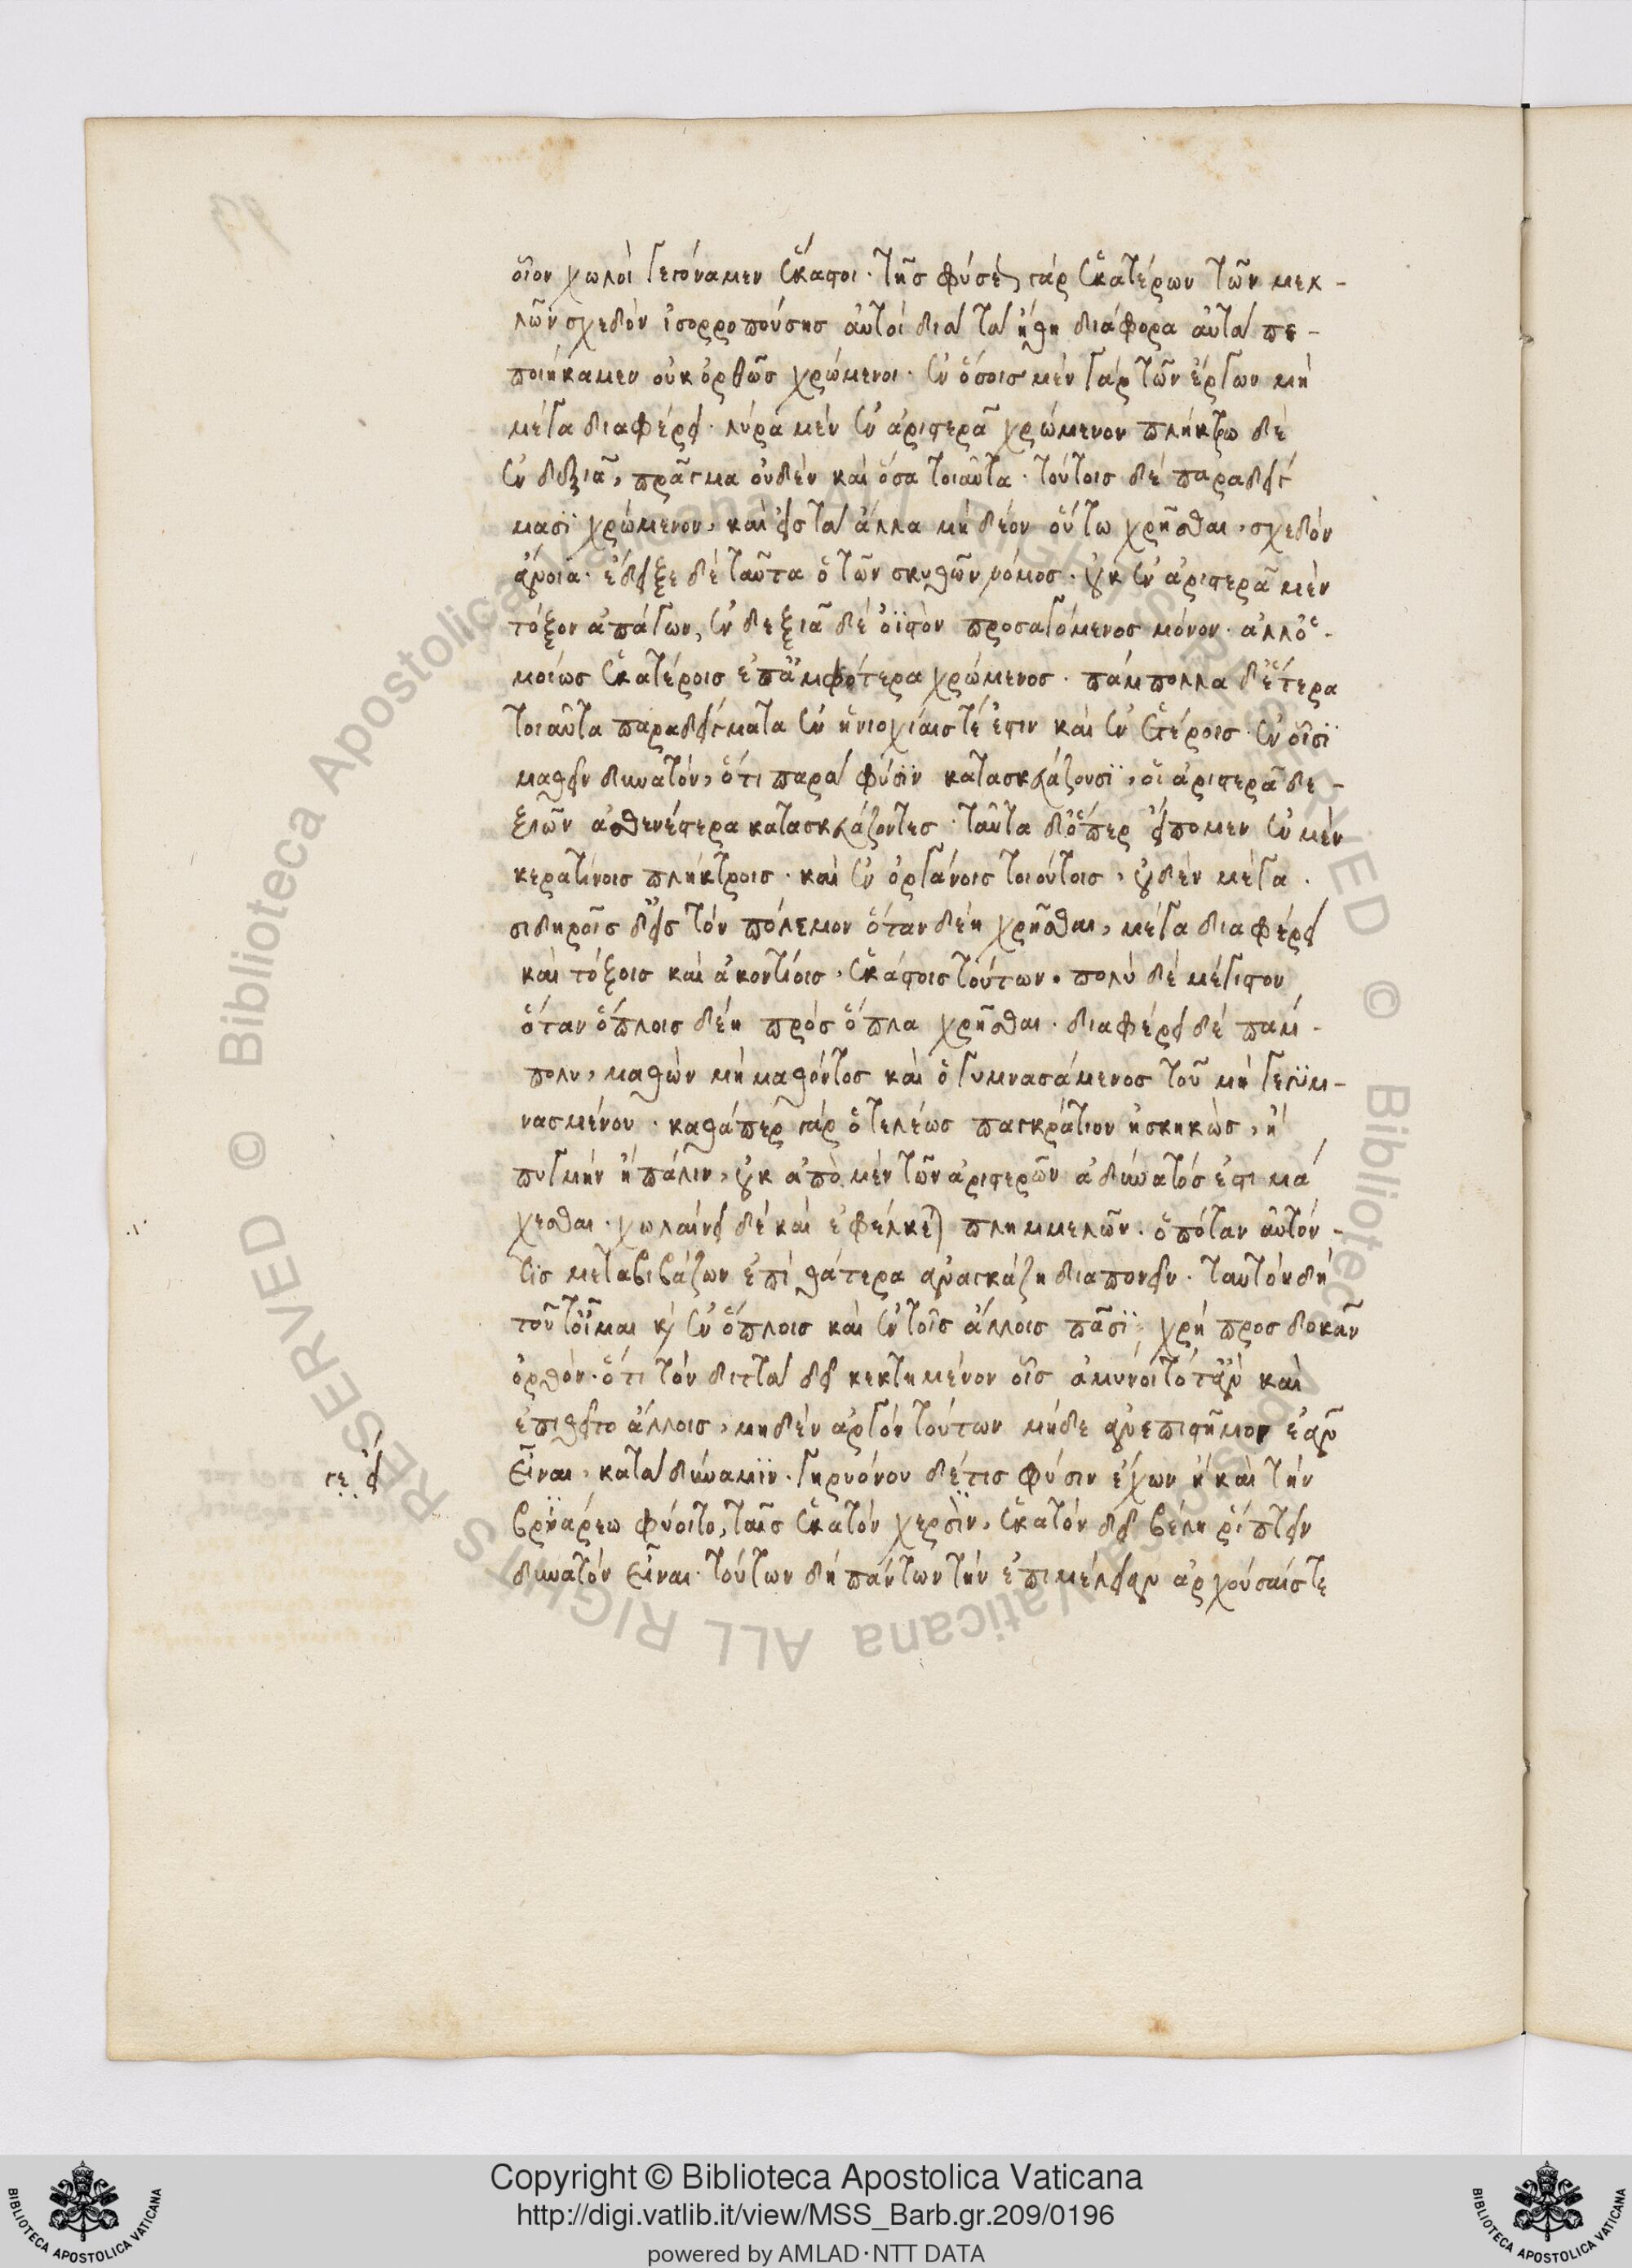 οἷον χωλοὶ γεγόναμεν ἕκαστοι· τῆς φύσεως γὰρ ἑκατέρων τῶν μελ-
λῶν σχεδὸν ἰσορροπούσης αὐτοὶ διὰ τὰ ἤθη διάφορα αὐτὰ πε-
ποιήκαμεν οὐκ ὀρθῶς χρώμενοι· ἐν ὅσοις μὲν γὰρ τῶν ἔργων μὴ
μέγα διαφέρει· λύρα μὲν ἐν ἀριστερᾶ χρώμενον πλήκτρω δὲ
ἐν δεξιᾶ, πρᾶγμα οὐδὲν καὶ ὅσα τοιαῦτα· τούτοις δὲ παραδείγ
μασϊ χρώμενον, καὶ εἰς τὰ ἄλλα μὴ δέον οὕτω χρῆσθαι, σχεδὸν
ἄνοια· ἔδειξε δὲ ταῦτα ὁ τῶν σκυθῶν νόμος· οὐκ ἐν ἀριστερᾶ μὲν
τόξον ἀπάγων, ἐν δεξιᾶ δὲ ὀϊστὸν προσαγόμενος μόνον· ἀλλ' ὁ-
μοίως ἑκατέροις ἐπ' ἀμφότερα χρώμενος· πάμπολλα δ' ἕτερα
τοιαῦτα παραδείγματα ἐν ἡνιοχίαις τέ ἐστιν καὶ ἐν ἑτέροις· ἐν οἷσϊ
μαθεῖν δυνατὸν, ὅτι παρὰ φύσϊν κατασκευάζουσϊ, οἱ ἀριστερὰ δε-
ξιῶν ἀσθενέστερα κατασκευάζοντες· ταῦτα δ' ὅπερ εἴπομεν ἐν μὲν
κερατίνοις πλήκτροις· καὶ ἐν ὀργάνοις τοιούτοις, οὐδὲν μέγα·
σιδηροῖς δ' εἰς τὸν πόλεμον ὅταν δέη χρῆσθαι, μέγα διαφέρει
καὶ τόξοις καὶ ἀκοντίοις, ἑκάστοις τούτων· πολὺ δὲ μέγιστον
ὅταν ὅπλοις δέη πρὸς ὅπλα χρῆσθαι· διαφέρει δὲ πάμ-
πολυ, μαθὼν μὴ μαθόντος καὶ ὁ γυμνασάμενος τοῦ μὴ γεγϋμ-
νασμένου· καθάπερ γὰρ ὁ τελέως παγκράτιον ἠσκηκὼς, ἢ
πυγμὴν ἢ πάλην, οὐκ ἀπὸ μὲν τῶν ἀριστερῶν ἀδύνατός ἐστι μά
χεσθαι· χωλαίνει δὲ καὶ ἐφέλκεται πλημμελῶν· ὁπόταν αὐτόν
τϊς μεταβιβάζων ἐπὶ θάτερα ἀναγκάζη διαπονεῖν· ταυτὸν δὴ
τοῦτ' οἶμαι καὶ ἐν ὅπλοις καὶ ἐν τοῖς ἄλλοις πᾶσϊ, χρὴ προσδοκᾶν
ὀρθὸν· ὅτι τὸν διττὰ δεῖ κεκτημένον οἷς ἀμύνοιτό τ' ἂν καὶ
ἐπιθεῖτο ἄλλοις, μηδὲν ἀργὸν τούτων μήδε ἀνεπιστῆμον ἐᾶν
εἶναι, κατὰ δύναμϊν· γηρυόνου δέ τις φύσιν ἔχων ἢ καὶ τὴν
γε εἰ
βρϋάρεω φύοιτο, ταῖς ἑκατὸν χερσὶν, ἑκατὸν δεῖ βέλη ῥίπτειν
δυνατὸν εἶναι· τούτων δὴ πάντων τὴν ἐπιμέλειαν ἀρχούσαις τε
Copyright © Biblioteca Apostolica Vaticana
http://digi.vatlib.it/view/MSS_Barb.gr.209/0196
powered by AMLAD·NTT DATA